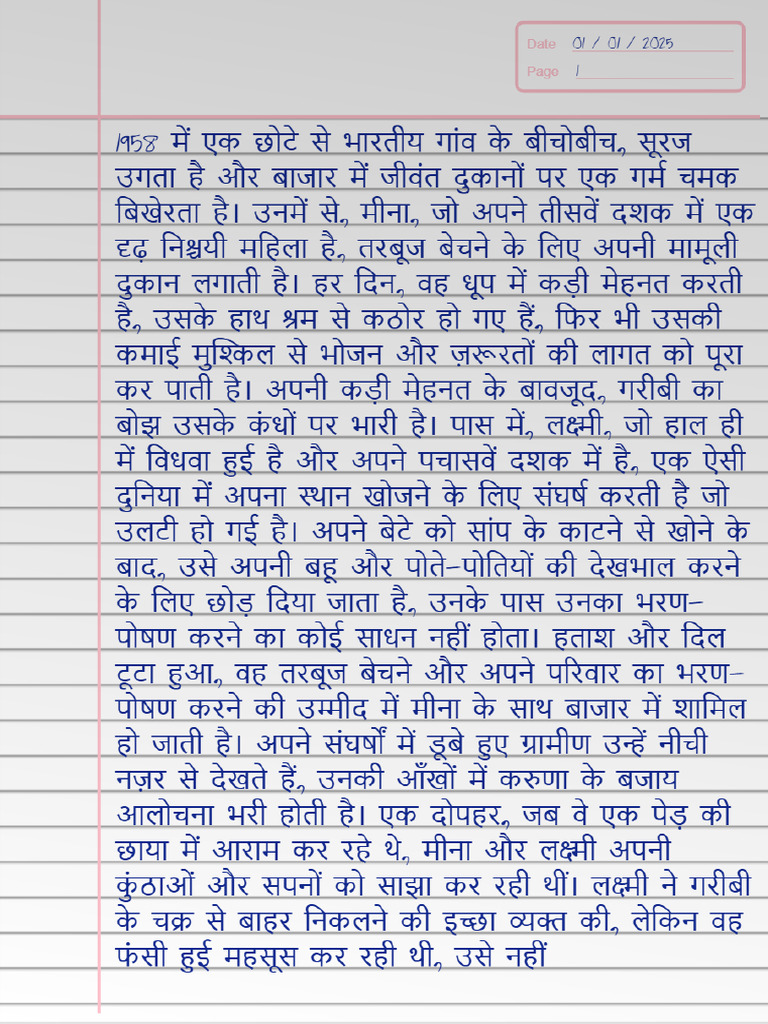 Date 01 / 01 / 2025
Page 1
1958 में एक छोटे से भारतीय गांव के बीचोबीच, सूरज
उगता है और बाजार में जीवंत दुकानों पर एक गर्म चमक
बिखेरता है। उनमें से, मीना, जो अपने तीसवें दशक में एक
दृढ़ निश्चयी महिला है, तरबूज बेचने के लिए अपनी मामूली
दुकान लगाती है। हर दिन, वह धूप में कड़ी मेहनत करती
है, उसके हाथ श्रम से कठोर हो गए हैं, फिर भी उसकी
कमाई मुश्किल से भोजन और ज़रूरतों की लागत को पूरा
कर पाती है। अपनी कड़ी मेहनत के बावजूद, गरीबी का
बोझ उसके कंधों पर भारी है। पास में, लक्ष्मी, जो हाल ही
में विधवा हुई है और अपने पचासवें दशक में है, एक ऐसी
दुनिया में अपना स्थान खोजने के लिए संघर्ष करती है जो
उलटी हो गई है। अपने बेटे को सांप के काटने से खोने के
बाद, उसे अपनी बहू और पोते-पोतियों की देखभाल करने
के लिए छोड़ दिया जाता है, उनके पास उनका भरण-
पोषण करने का कोई साधन नहीं होता। हताश और दिल
टूटा हुआ, वह तरबूज बेचने और अपने परिवार का भरण-
पोषण करने की उम्मीद में मीना के साथ बाजार में शामिल
हो जाती है। अपने संघर्षों में डूबे हुए ग्रामीण उन्हें नीची
नज़र से देखते हैं, उनकी आँखों में करुणा के बजाय
आलोचना भरी होती है। एक दोपहर, जब वे एक पेड़ की
छाया में आराम कर रहे थे, मीना और लक्ष्मी अपनी
कुंठाओं और सपनों को साझा कर रही थीं। लक्ष्मी ने गरीबी
के चक्र से बाहर निकलने की इच्छा व्यक्त की, लेकिन वह
फंसी हुई महसूस कर रही थी, उसे नहीं